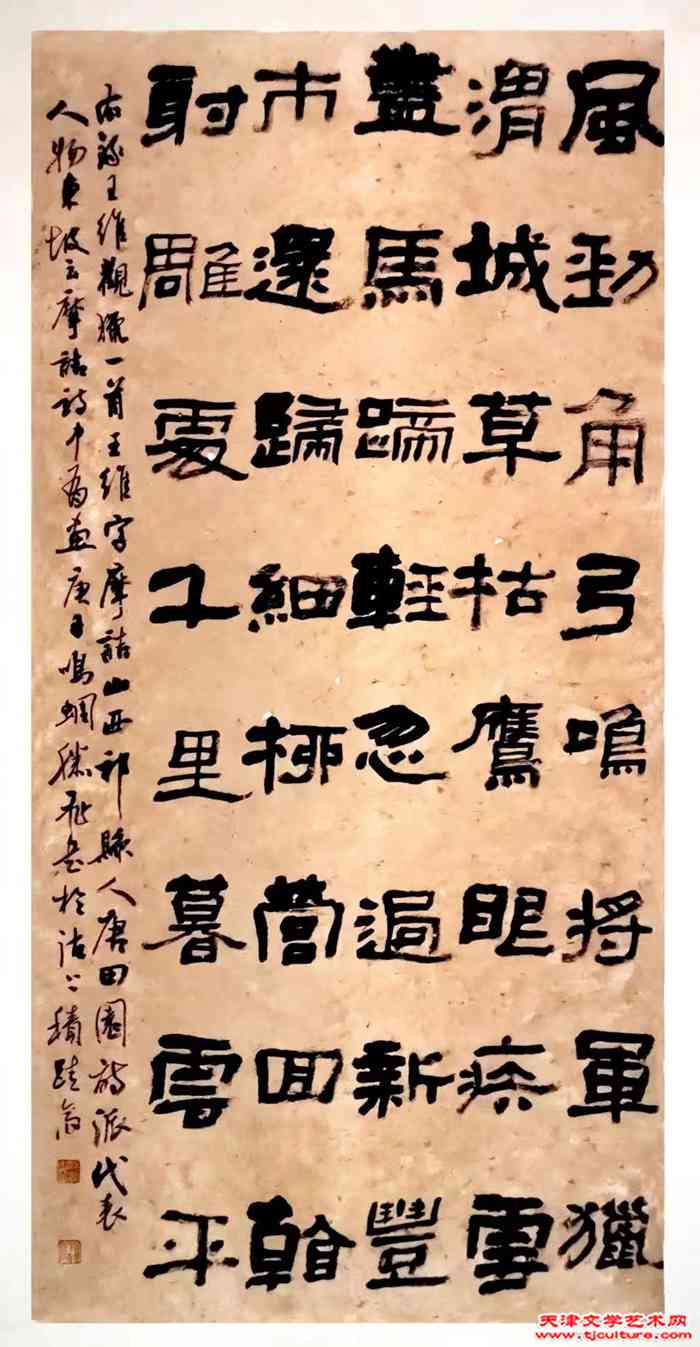 風勁角弓鳴將軍獵
渭城草枯鷹眼疾雪
盡馬蹄輕忽過新豐
市還歸細柳營回看
射雕處千里暮雲平
右錄王維觀獵一首王維字摩詰山西祁縣人唐田園詩派代表
人物東坡云摩詰詩中有畫庚子鳴蜩於沽上積跬
天津文学艺术网
www.tjculture.com